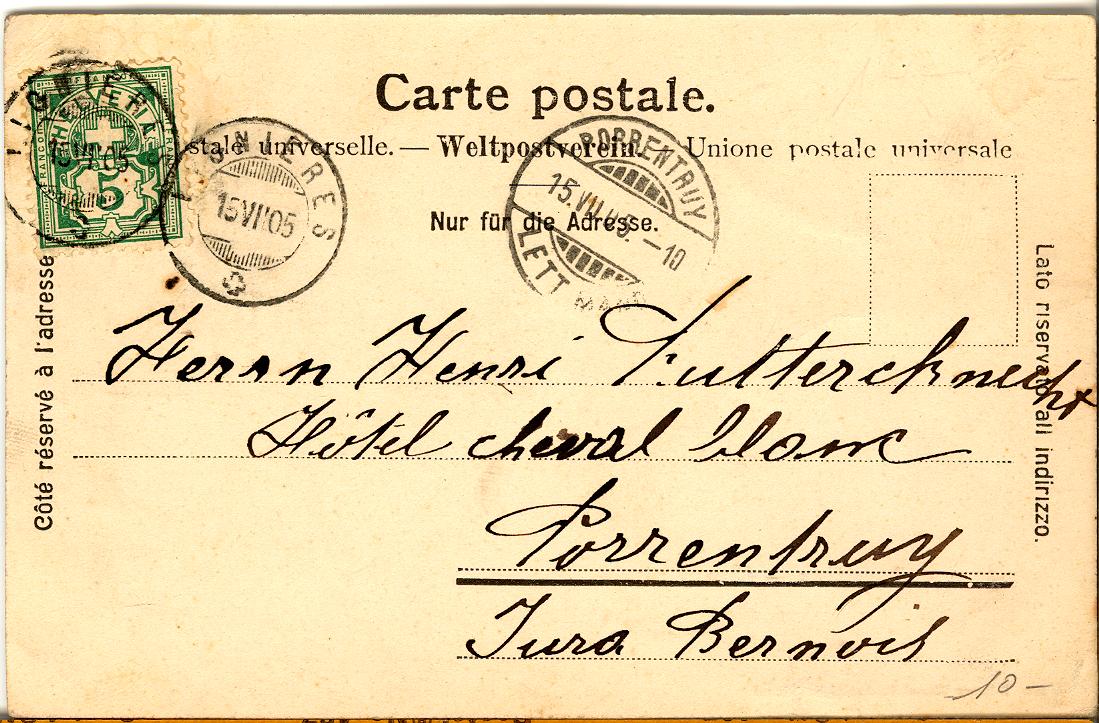 Carte postale.
stale universelle. — Weltpostverein. — Unione postale universale
Nur für die Adresse.
Côté réservé à l'adresse
Lato riservato all indirizzo.
HELVETIA
FRANCO
5
LIGNIERES
15.VII.05
PORRENTRUY
15.VII.05.–10
LETT
Herrn Henri Futterknecht
Hôtel cheval blanc
Porrentruy
Jura Bernois
10–